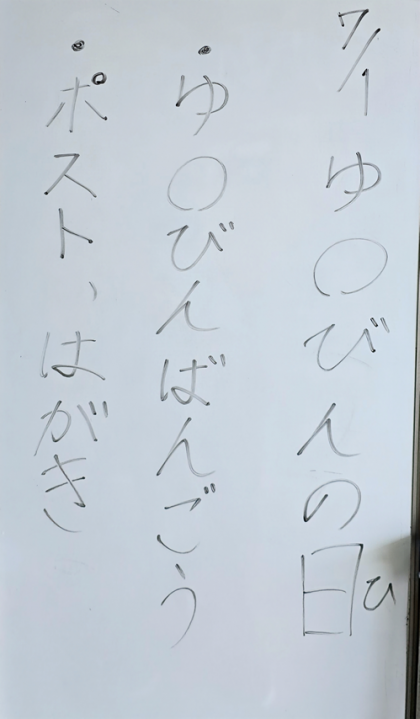 7/1 ゆ〇びんの日ひ
・ゆ〇びんばんごう
・ポスト、はがき